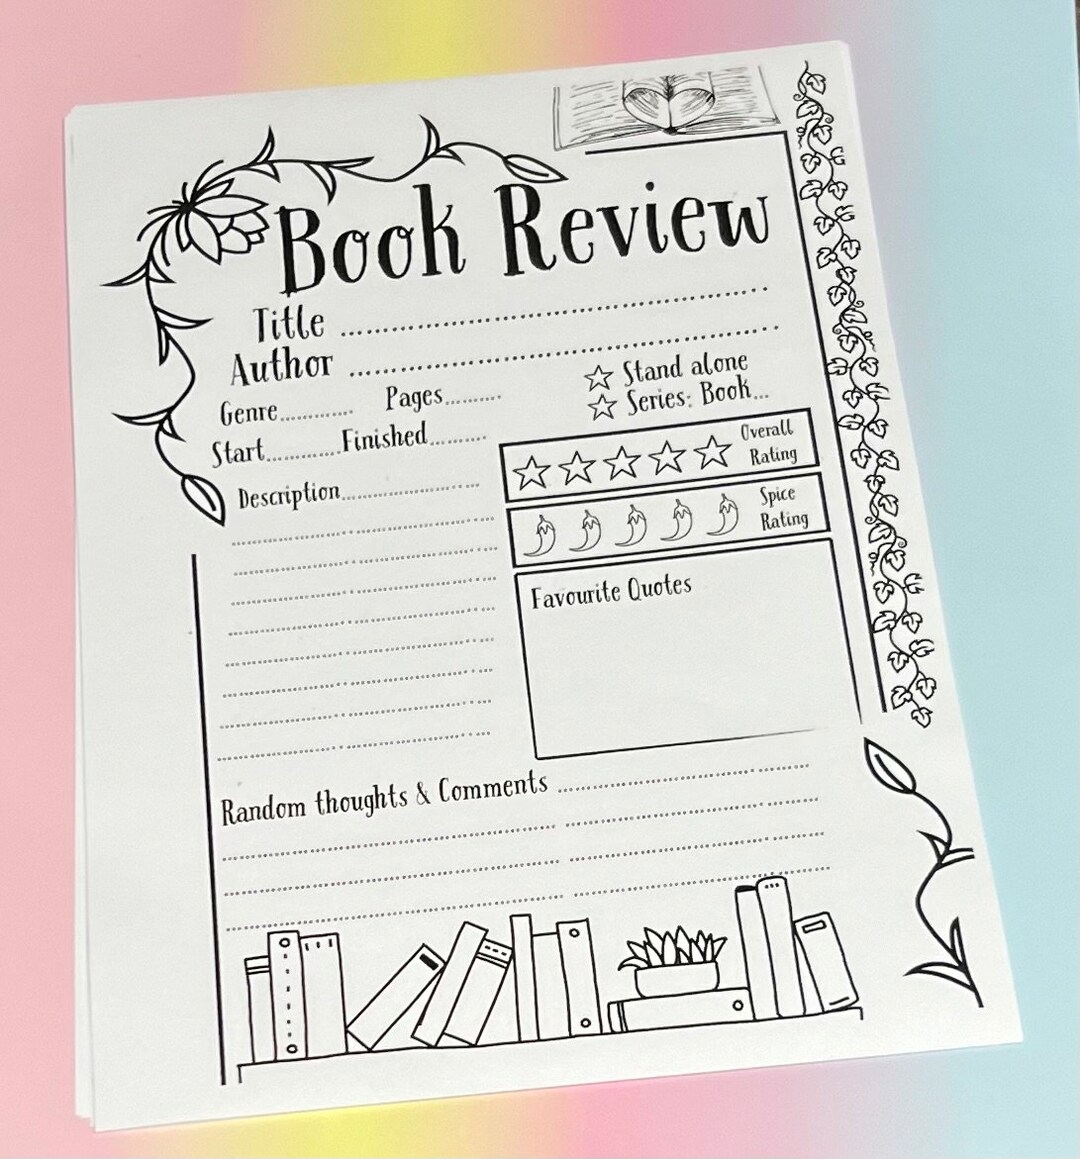 Book Review
Title ........................................
Author ........................................
Genre............. Pages..........
Start............Finished..........
Stand alone
Series: Book...
Overall
Rating
Spice
Rating
Description..........................
Favourite Quotes
Random thoughts & Comments ........................................